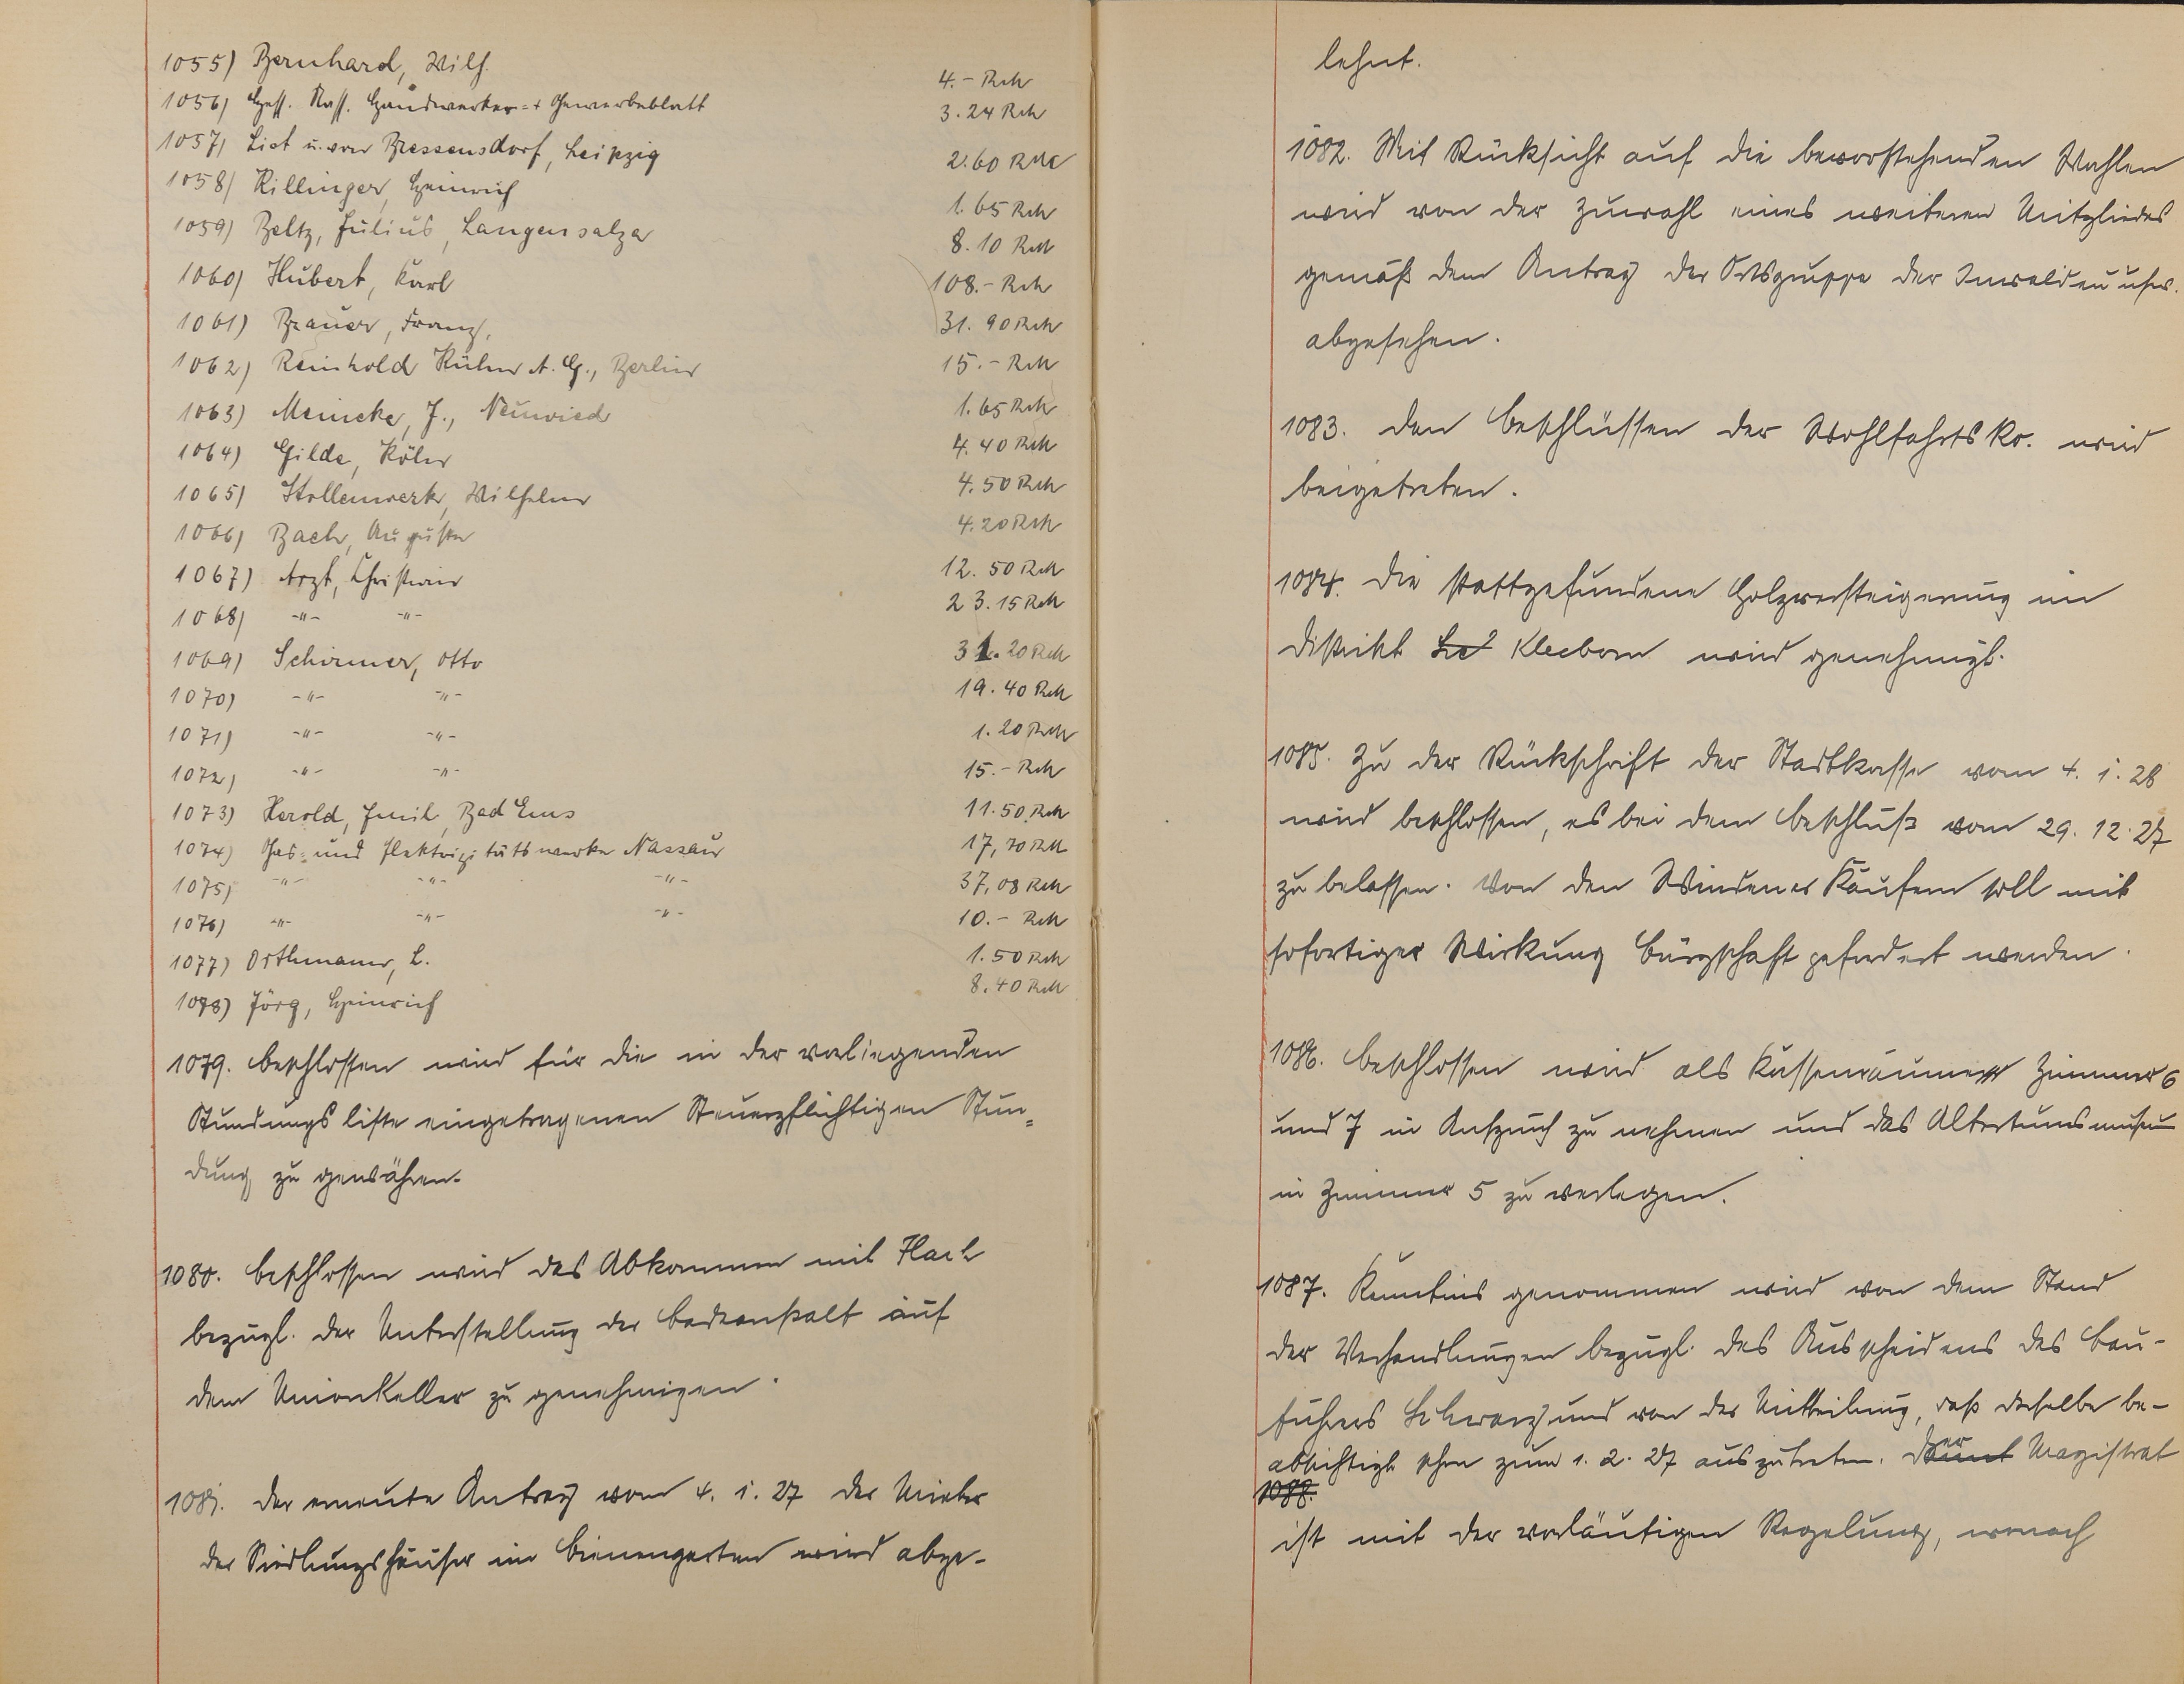 1055) Bernhard, Wilh. 4.- RM
1056) Hess. Nass. Handwerker- + Gewerbeblatt 3.24 RM
1057) List u. von Bressensdorf, Leipzig 2.60 RM
1058) Killinger, Heinrich 1.65 RM
1059) Beltz, Julius, Langensalza 8.10 RM
1060) Hubert, Karl 108.- RM
1061) Brauer, Franz, 31.90 RM
1062) Reinhold Kühn A.G., Berlin 15.- RM
1063) Meincke, J., Neuwied 1.65 RM
1064) Gilde, Köln 4.40 RM
1065) Stollenwerk, Wilhelm 4.50 RM
1066) Bach, Auguste 4.20 RM
1067) Arzt, Christian 12.50 RM
1068) -"- -"- 23.15 RM
1069) Schirmer, Otto 31.20 RM
1070) -"- -"- 19.40 RM
1071) -"- -"- 1.20 RM
1072) -"- -"- 15.- RM
1073) Herold, Emil, Bad Ems 11.50 RM
1074) Gas- und Elektrizitätswerke Nassau 17,70 RM
1075) -"- -"- -"- 37,08 RM
1076) -"- -"- -"- 10.- RM
1077) Orthmann, L. 1.50 RM
1078) Jörg, Heinrich 8.40 RM
1079. Beschlossen wird für die in der vorliegenden
Stundungsliste eingetragenen Steuerpflichtigen Stun=
dung zu gewähren.
1080. Beschlossen wird das Abkommen mit Flach
bezügl. der Unterstellung der Badeanstalt auf
dem Unionkeller zu genehmigen.
1081. Der erneute Antrag vom 4. 1. 27 der Mieter
der Siedlungshäuser im Bienengarten wird abge-
lehnt.
1082. Mit Rücksicht auf die bevorstehenden Wahlen
wird von der Zuwahl eines weiteren Mitgliedes
gemäß dem Antrag der Ortsgruppe der Invaliden usw.
abgesehen.
1083. Den Beschlüssen der Wohlfahrts Ko. wird
beigetreten.
1084. Die stattgefundene Holzversteigerung im
Distrikt Kleeborn wird genehmigt.
1085. Zu der Rückschrift der Stadtkasse vom 4. 1. 28
wird beschlossen, es bei dem Beschluß vom 29. 12. 27
zu belassen. Von den Windener Käufern soll mit
sofortiger Wirkung Bürgschaft gefordert werden.
1086. Beschlossen wird als Kassenräume Zimmer 6
und 7 in Anspruch zu nehmen und das Altertumsmuseum
in Zimmer 5 zu verlegen.
1087. Kenntnis genommen wird von dem Stand
der Verhandlungen bezügl. des Ausscheidens des Bau-
führers Schwarz und von der Mitteilung, daß derselbe be-
absichtigt schon zum 1. 2. 27 auszutreten. Der Magistrat
1088.
ist mit der vorläufigen Regelung, wonach